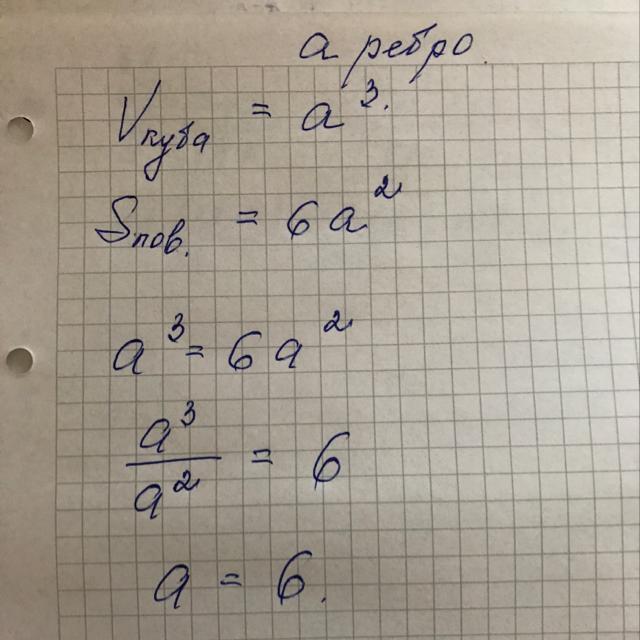 a ребро.
Vкуба = a³.
Sпов. = 6a²
a³ = 6a²
a³
a² = 6
a = 6.